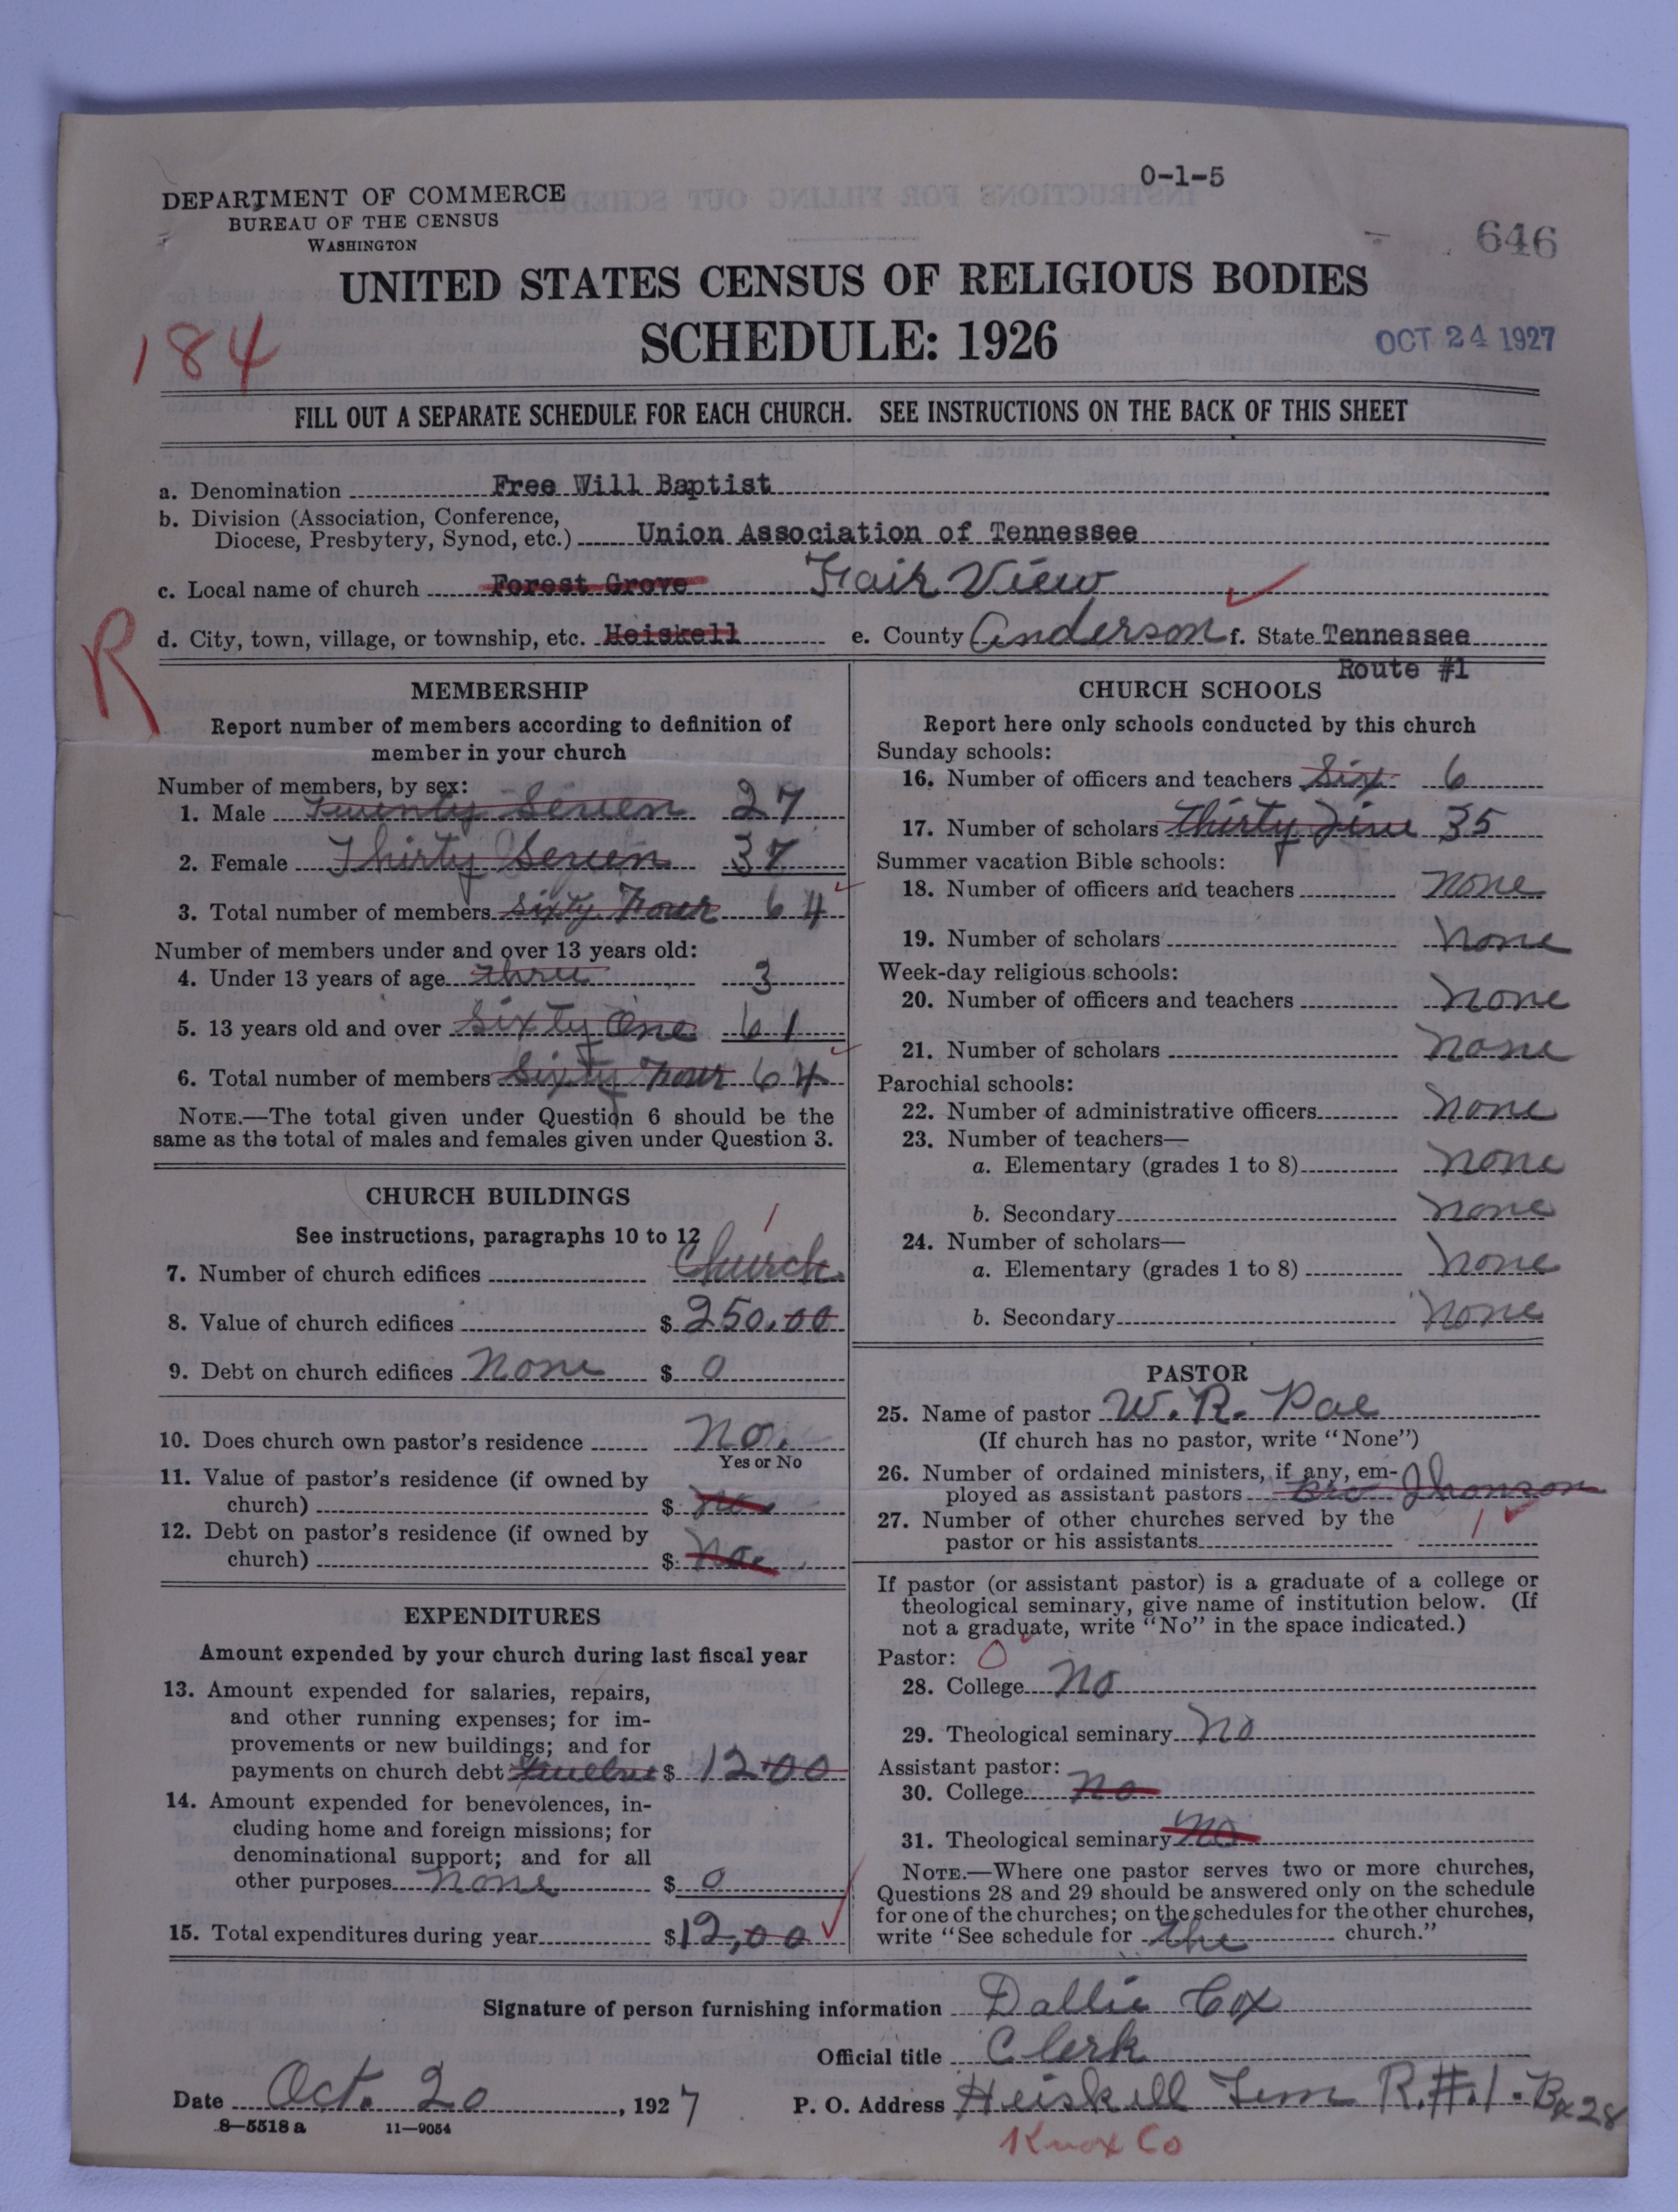 0-1-5
DEPARTMENT OF COMMERCE
BUREAU OF THE CENSUS
WASHINGTON
646
UNITED STATES CENSUS OF RELIGIOUS BODIES
SCHEDULE: 1926
184
OCT 24 1927
FILL OUT A SEPARATE SCHEDULE FOR EACH CHURCH. SEE INSTRUCTIONS ON THE BACK OF THIS SHEET
a. Denomination Free Will Baptist
b. Division (Association, Conference,
Diocese, Presbytery, Synod, etc.) Union Association of Tennessee
c. Local name of church Forest Grove Fair View
R
d. City, town, village, or township, etc. Heiskell e. County Anderson f. State Tennessee
Route #1
MEMBERSHIP
Report number of members according to definition of
member in your church
Number of members, by sex:
1. Male Twenty Seven 27
2. Female Thirty Seven 37
3. Total number of members Sixty Four 64
Number of members under and over 13 years old:
4. Under 13 years of age three 3
5. 13 years old and over Sixty One 61
6. Total number of members Sixty Four 64
NOTE.—The total given under Question 6 should be the
same as the total of males and females given under Question 3.
CHURCH BUILDINGS
See instructions, paragraphs 10 to 12
1
7. Number of church edifices Church
8. Value of church edifices $ 250.00
9. Debt on church edifices None $ 0
10. Does church own pastor's residence No.
Yes or No
11. Value of pastor's residence (if owned by
church) $ No.
12. Debt on pastor's residence (if owned by
church) $ No.
EXPENDITURES
Amount expended by your church during last fiscal year
13. Amount expended for salaries, repairs,
and other running expenses; for im-
provements or new buildings; and for
payments on church debt $ 12.00
14. Amount expended for benevolences, in-
cluding home and foreign missions; for
denominational support; and for all
other purposes None $ 0
15. Total expenditures during year $12,00
CHURCH SCHOOLS
Report here only schools conducted by this church
Sunday schools:
16. Number of officers and teachers Six 6
17. Number of scholars Thirty Five 35
Summer vacation Bible schools:
18. Number of officers and teachers None
19. Number of scholars None
Week-day religious schools:
20. Number of officers and teachers None
21. Number of scholars None
Parochial schools:
22. Number of administrative officers None
23. Number of teachers—
a. Elementary (grades 1 to 8) None
b. Secondary None
24. Number of scholars—
a. Elementary (grades 1 to 8) None
b. Secondary None
PASTOR
25. Name of pastor W. R. Pae
(If church has no pastor, write "None")
26. Number of ordained ministers, if any, em-
ployed as assistant pastors Bro Jhonson
27. Number of other churches served by the
pastor or his assistants 1
If pastor (or assistant pastor) is a graduate of a college or
theological seminary, give name of institution below. (If
not a graduate, write "No" in the space indicated.)
Pastor: 0
28. College No
29. Theological seminary No
Assistant pastor:
30. College No
31. Theological seminary No
NOTE.—Where one pastor serves two or more churches,
Questions 28 and 29 should be answered only on the schedule
for one of the churches; on the schedules for the other churches,
write "See schedule for the church."
Signature of person furnishing information Dallie Cox
Official title Clerk
Date Oct. 20, 1927 P. O. Address Heiskell Tenn R.#.1-Bx28
8—5518 a 11—9054
Knox Co